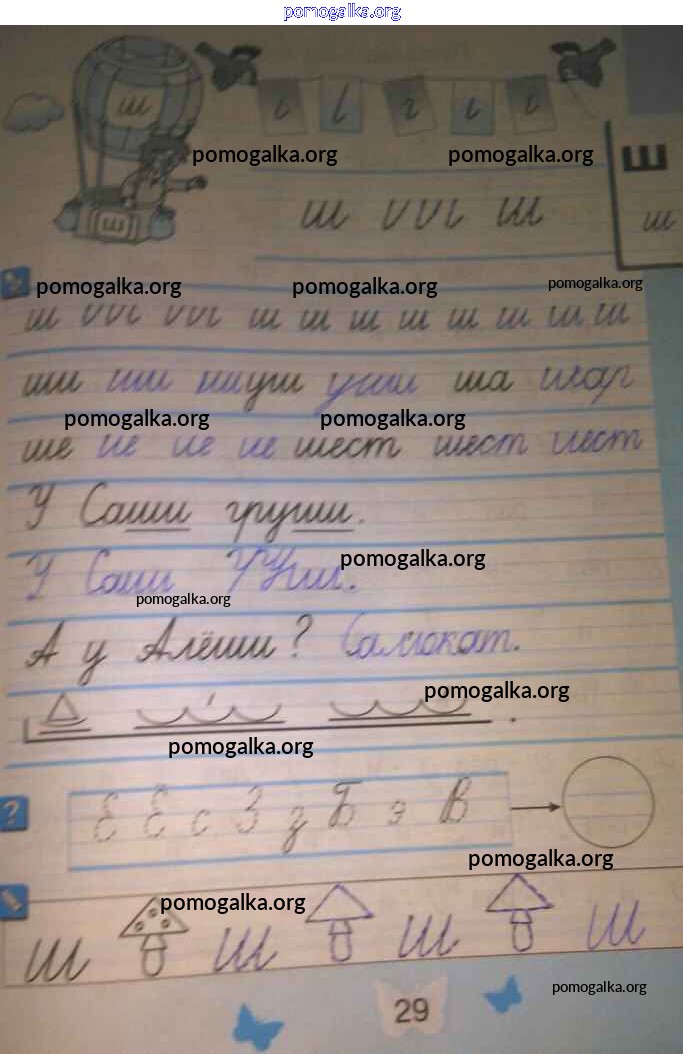 pomogalka.org
ш
pomogalka.org pomogalka.org
Ш
ш
ш
ш
pomogalka.org pomogalka.org pomogalka.org
ш ш ш ш ш ш ш ш ш
ши ши уши уши ша шар
pomogalka.org pomogalka.org
ше шест шест шест
У Саши груши.
pomogalka.org
У Саши
pomogalka.org
А у Алёши? Самокат.
pomogalka.org
pomogalka.org
?
Е Е с З з Б э В
pomogalka.org
pomogalka.org
ш ш ш ш
pomogalka.org
29